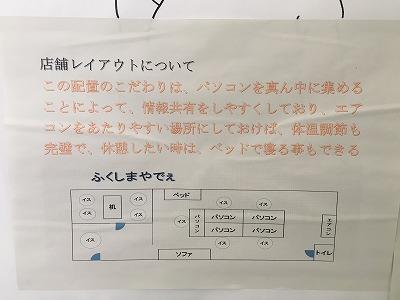 店舗レイアウトについて
この配置のこだわりは、パソコンを真ん中に集める
ことによって、情報共有をしやすくしており、エア
コンをあたりやすい場所にしておけば、体温調節も
完璧で、休憩したい時は、ベッドで寝る事もできる
ふくしまやでぇ
ベッド
イス
イス
机
イス
イス
イス
イス
イス
イス
パソコン
パソコン
パソコン
パソコン
パソコン
エアコン
イス
イス
ソファ
トイレ